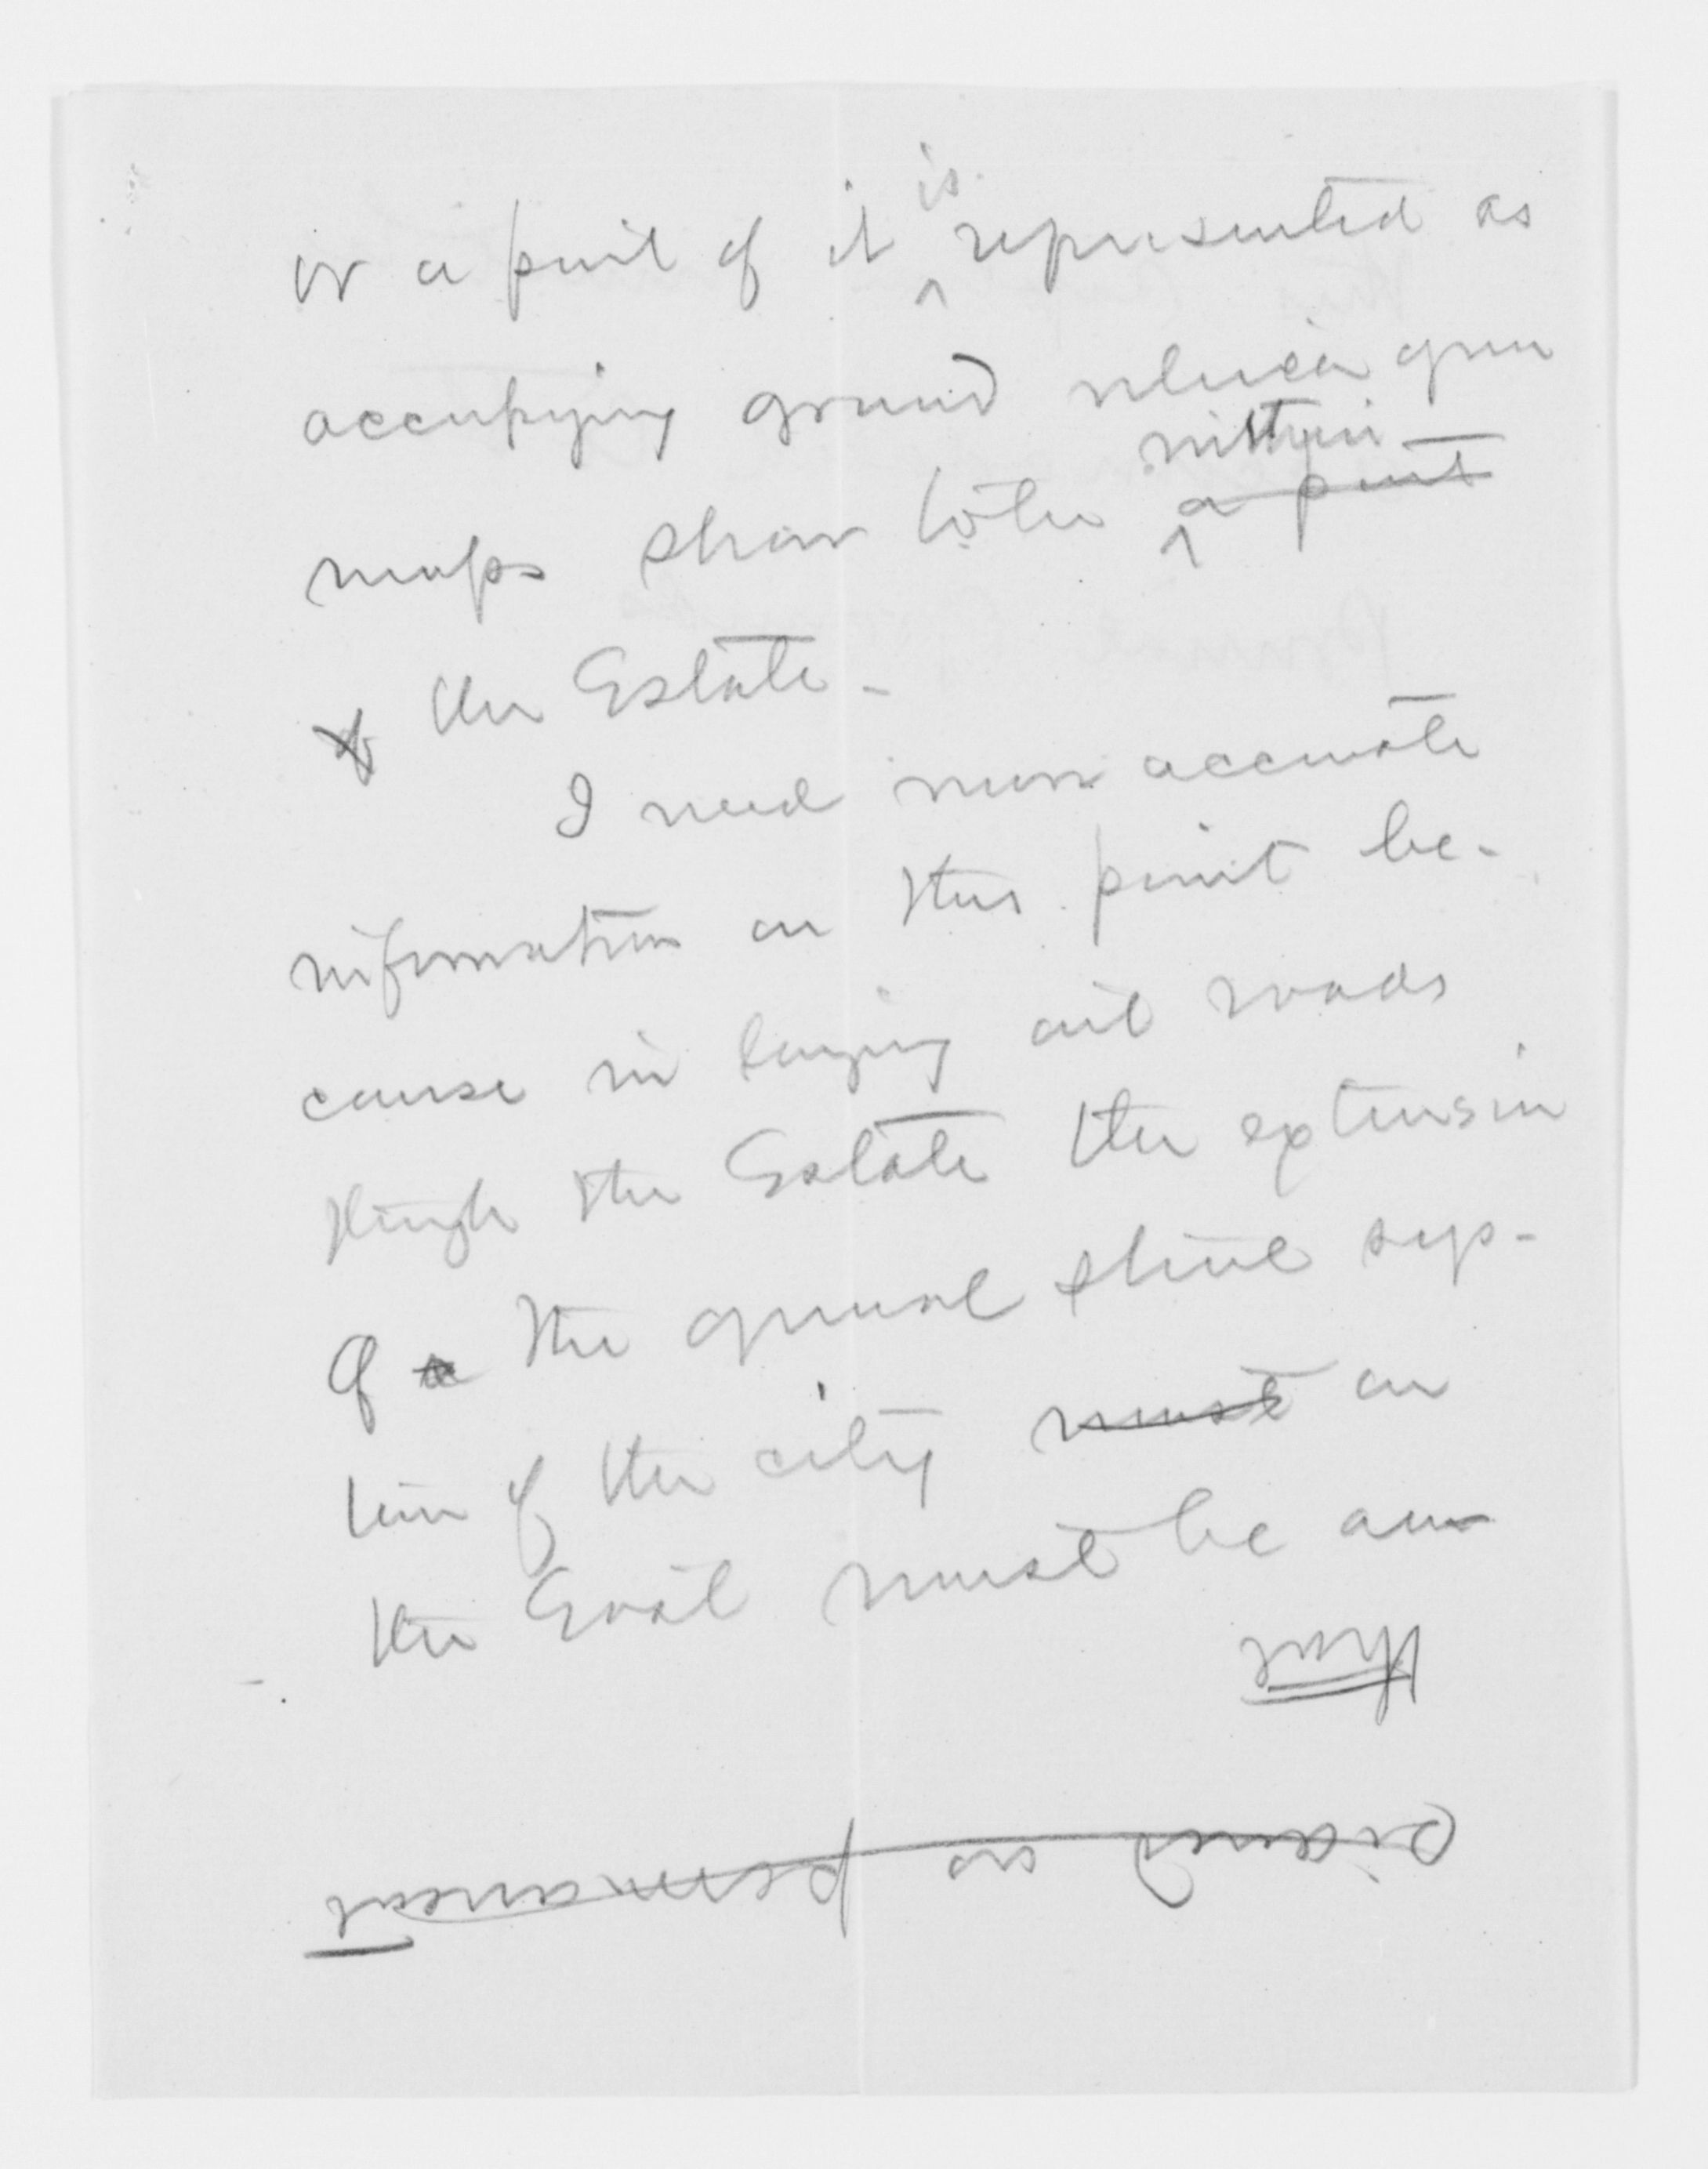 or a part of it is represented as
occupying ground which your
maps show to be within a part
of the Estate -
I need more accurate
information on this point be-
cause in laying out roads
through the Estate the extension
of a the general street sys-
tem of the city must on
the East must be
that
as permanent